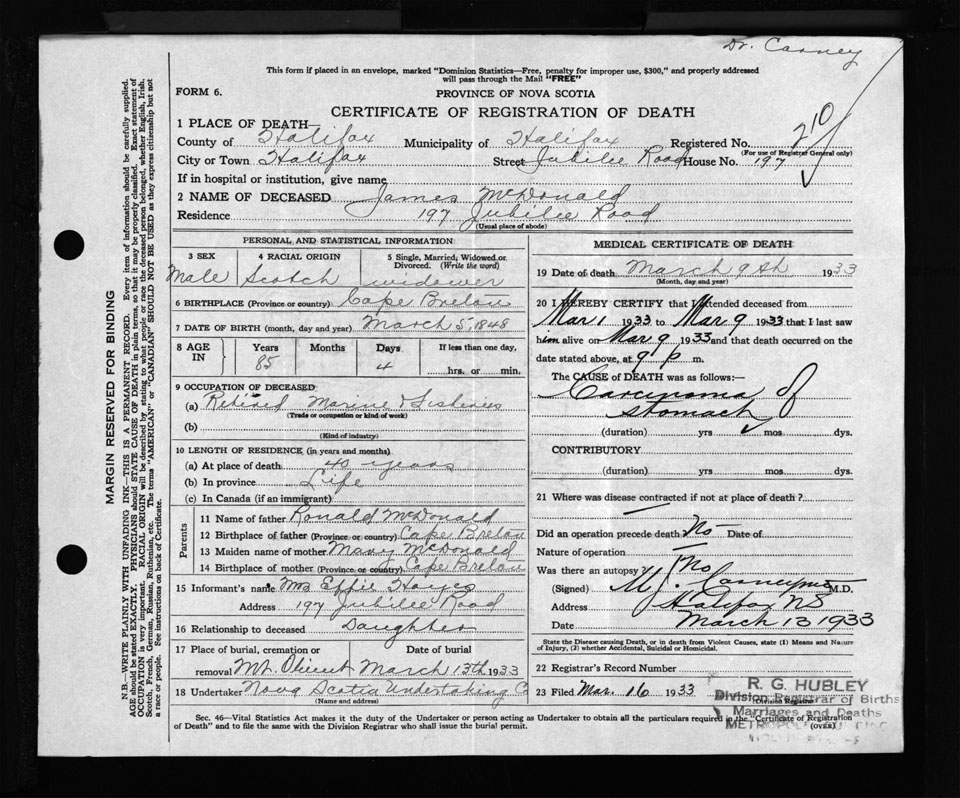 Dr. Carney
This form if placed in an envelope, marked "Dominion Statistics—Free, penalty for improper use, $300," and properly addressed
will pass through the Mail "FREE"
FORM 6.
PROVINCE OF NOVA SCOTIA
CERTIFICATE OF REGISTRATION OF DEATH
1 PLACE OF DEATH—
County of Halifax Municipality of Halifax Registered No. 210
(For use of Registrar General only)
City or Town Halifax Street Jubilee Road House No. 197
If in hospital or institution, give name
2 NAME OF DECEASED James McDonald
Residence 197 Jubilee Road
(Usual place of abode)
PERSONAL AND STATISTICAL INFORMATION
3 SEX 4 RACIAL ORIGIN 5 Single, Married, Widowed or
Divorced. (Write the word)
Male Scotch widower
6 BIRTHPLACE (Province or country) Cape Breton
7 DATE OF BIRTH (month, day and year) March 5, 1848
8 AGE IN Years Months Days If less than one day,
85 4 hrs. or min.
9 OCCUPATION OF DECEASED
(a) Retired Marine & Fisheries
(Trade or occupation or kind of work)
(b)
(Kind of industry)
10 LENGTH OF RESIDENCE (in years and months)
(a) At place of death 40 years
(b) In province Life
(c) In Canada (if an immigrant)
Parents
11 Name of father Ronald McDonald
12 Birthplace of father (Province or country) Cape Breton
13 Maiden name of mother Mary McDonald
14 Birthplace of mother (Province or country) Cape Breton
15 Informant's name Mrs Effie Hayes
Address 197 Jubilee Road
16 Relationship to deceased Daughter
17 Place of burial, cremation or Date of burial
removal Mt. Olivet March 13th 1933
18 Undertaker Nova Scotia Undertaking Co
(Name and address)
MEDICAL CERTIFICATE OF DEATH
19 Date of death March 9th 1933
(Month, day and year)
20 I HEREBY CERTIFY that I attended deceased from
Mar 1 1933 to Mar 9 1933 that I last saw
him alive on Mar 9 1933 and that death occurred on the
date stated above, at 9 p m.
The CAUSE of DEATH was as follows:—
Carcinoma of
stomach
(duration) yrs mos. dys.
CONTRIBUTORY
(duration) yrs. mos. dys.
21 Where was disease contracted if not at place of death?
Did an operation precede death No Date of
Nature of operation
Was there an autopsy? No
(Signed) M. J. Carney M.D.
Address Halifax NS
Date March 13 1933
State the Disease causing Death, or in death from Violent Causes, state (1) Means and Nature
of Injury, (2) whether Accidental, Suicidal or Homicidal.
22 Registrar's Record Number
23 Filed Mar. 16 1933
Division Registrar
R. G. HUBLEY
Division Registrar of Births
Marriages and Deaths
Sec. 46—Vital Statistics Act makes it the duty of the Undertaker or person acting as Undertaker to obtain all the particulars required in the "Certificate of Registration
of Death" and to file the same with the Division Registrar who shall issue the burial permit. (OVER)
MARGIN RESERVED FOR BINDING
N.B.—WRITE PLAINLY WITH UNFADING INK—THIS IS A PERMANENT RECORD. Every item of information should be carefully supplied.
AGE should be stated EXACTLY. PHYSICIANS should STATE CAUSE OF DEATH in plain terms, so that it may be properly classified. Exact statement of
OCCUPATION is very important. RACIAL ORIGIN will be described by stating to what people or race the deceased person belonged, whether English, Irish,
Scotch, French, German, Russian, Ruthenian, etc. The terms "AMERICAN" or "CANADIAN" SHOULD NOT BE USED as they express citizenship but not
a race or people. See instructions on back of Certificate.